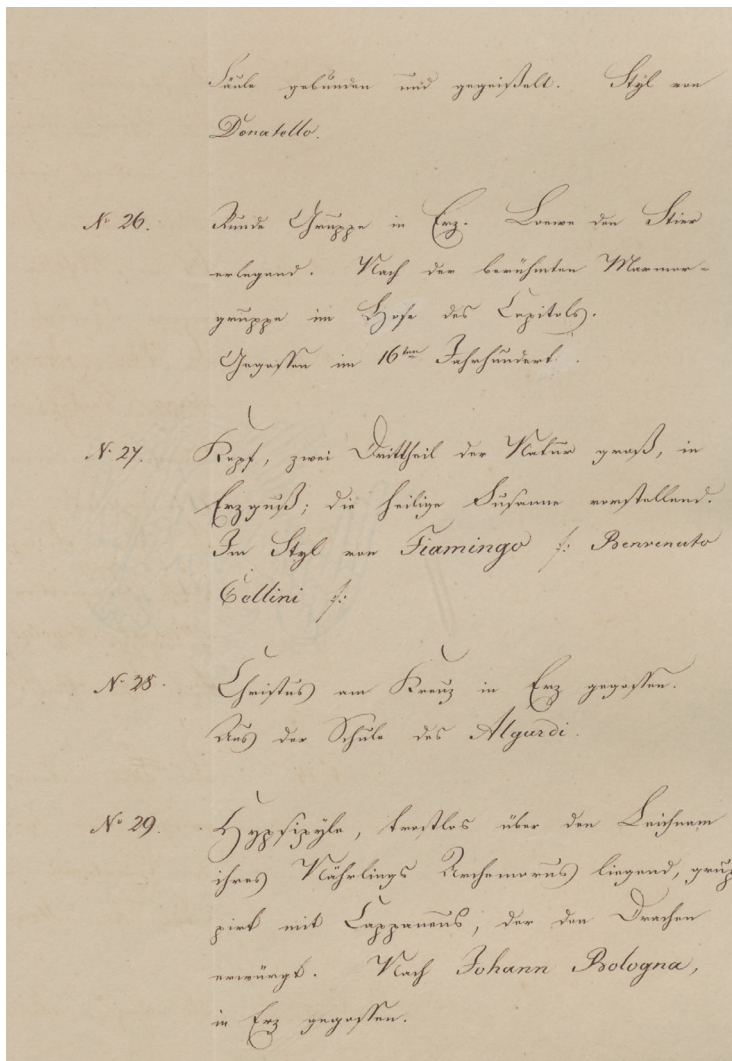 Säule gebunden und gegeißelt. Styl von
Donatello.
No 26. Runde Gruppe in Erz. Loewe den Stier
erlegend. Nach der berühmten Marmor-
gruppe im Hofe des Capitols.
Gegossen im 16ten Jahrhundert.
N. 27. Kopf, zwei Drittheil der Natur groß, in
Erzguß; die heilige Susanne vorstellend.
Im Styl von Fiamingo /: Benvenuto
Cellini /:
N. 28. Christus am Kreuz in Erz gegossen.
Aus der Schule des Algardi.
No 29. Hypsipyle, trostlos über den Leichnam
ihres Nährlings Archemorus liegend, grup
pirt mit Cappaneus, der den Drachen
erwürgt. Nach Johann Bologna,
in Erz gegossen.